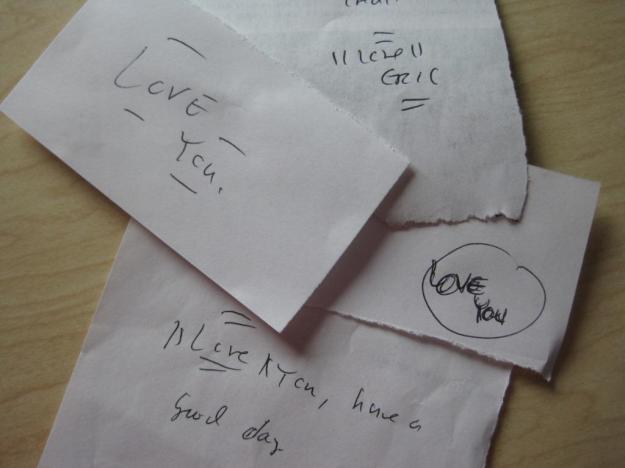 "Love"
ERIC
LOVE
You.
LOVE
You
"Love" You, have a
good day